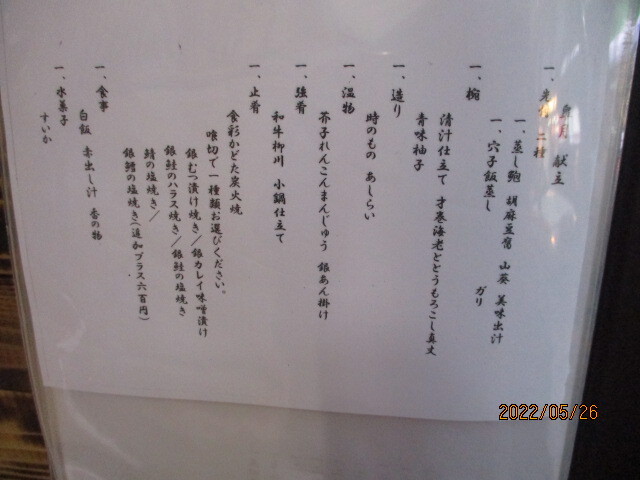 献立
一、 二種
一、蒸し鮑 胡麻豆腐 山葵 美味出汁
一、穴子飯蒸し ガリ
一、椀
清汁仕立て 才巻海老とどうもろこし真丈
青味柚子
一、造り
時のもの あしらい
一、温物
芥子れんこんまんじゅう 銀あん掛け
一、強肴
和牛柳川 小鍋仕立て
一、止肴
食彩かどた炭火焼
喰切で一種類お選びください。
銀むつ漬け焼き/銀カレイ味噌漬け
銀鮭のハラス焼き/銀鮭の塩焼き
鯖の塩焼き/
銀鱈の塩焼き(追加プラス六百円)
一、食事
白飯 赤出し汁 香の物
一、水菓子
すいか
2022/05/26